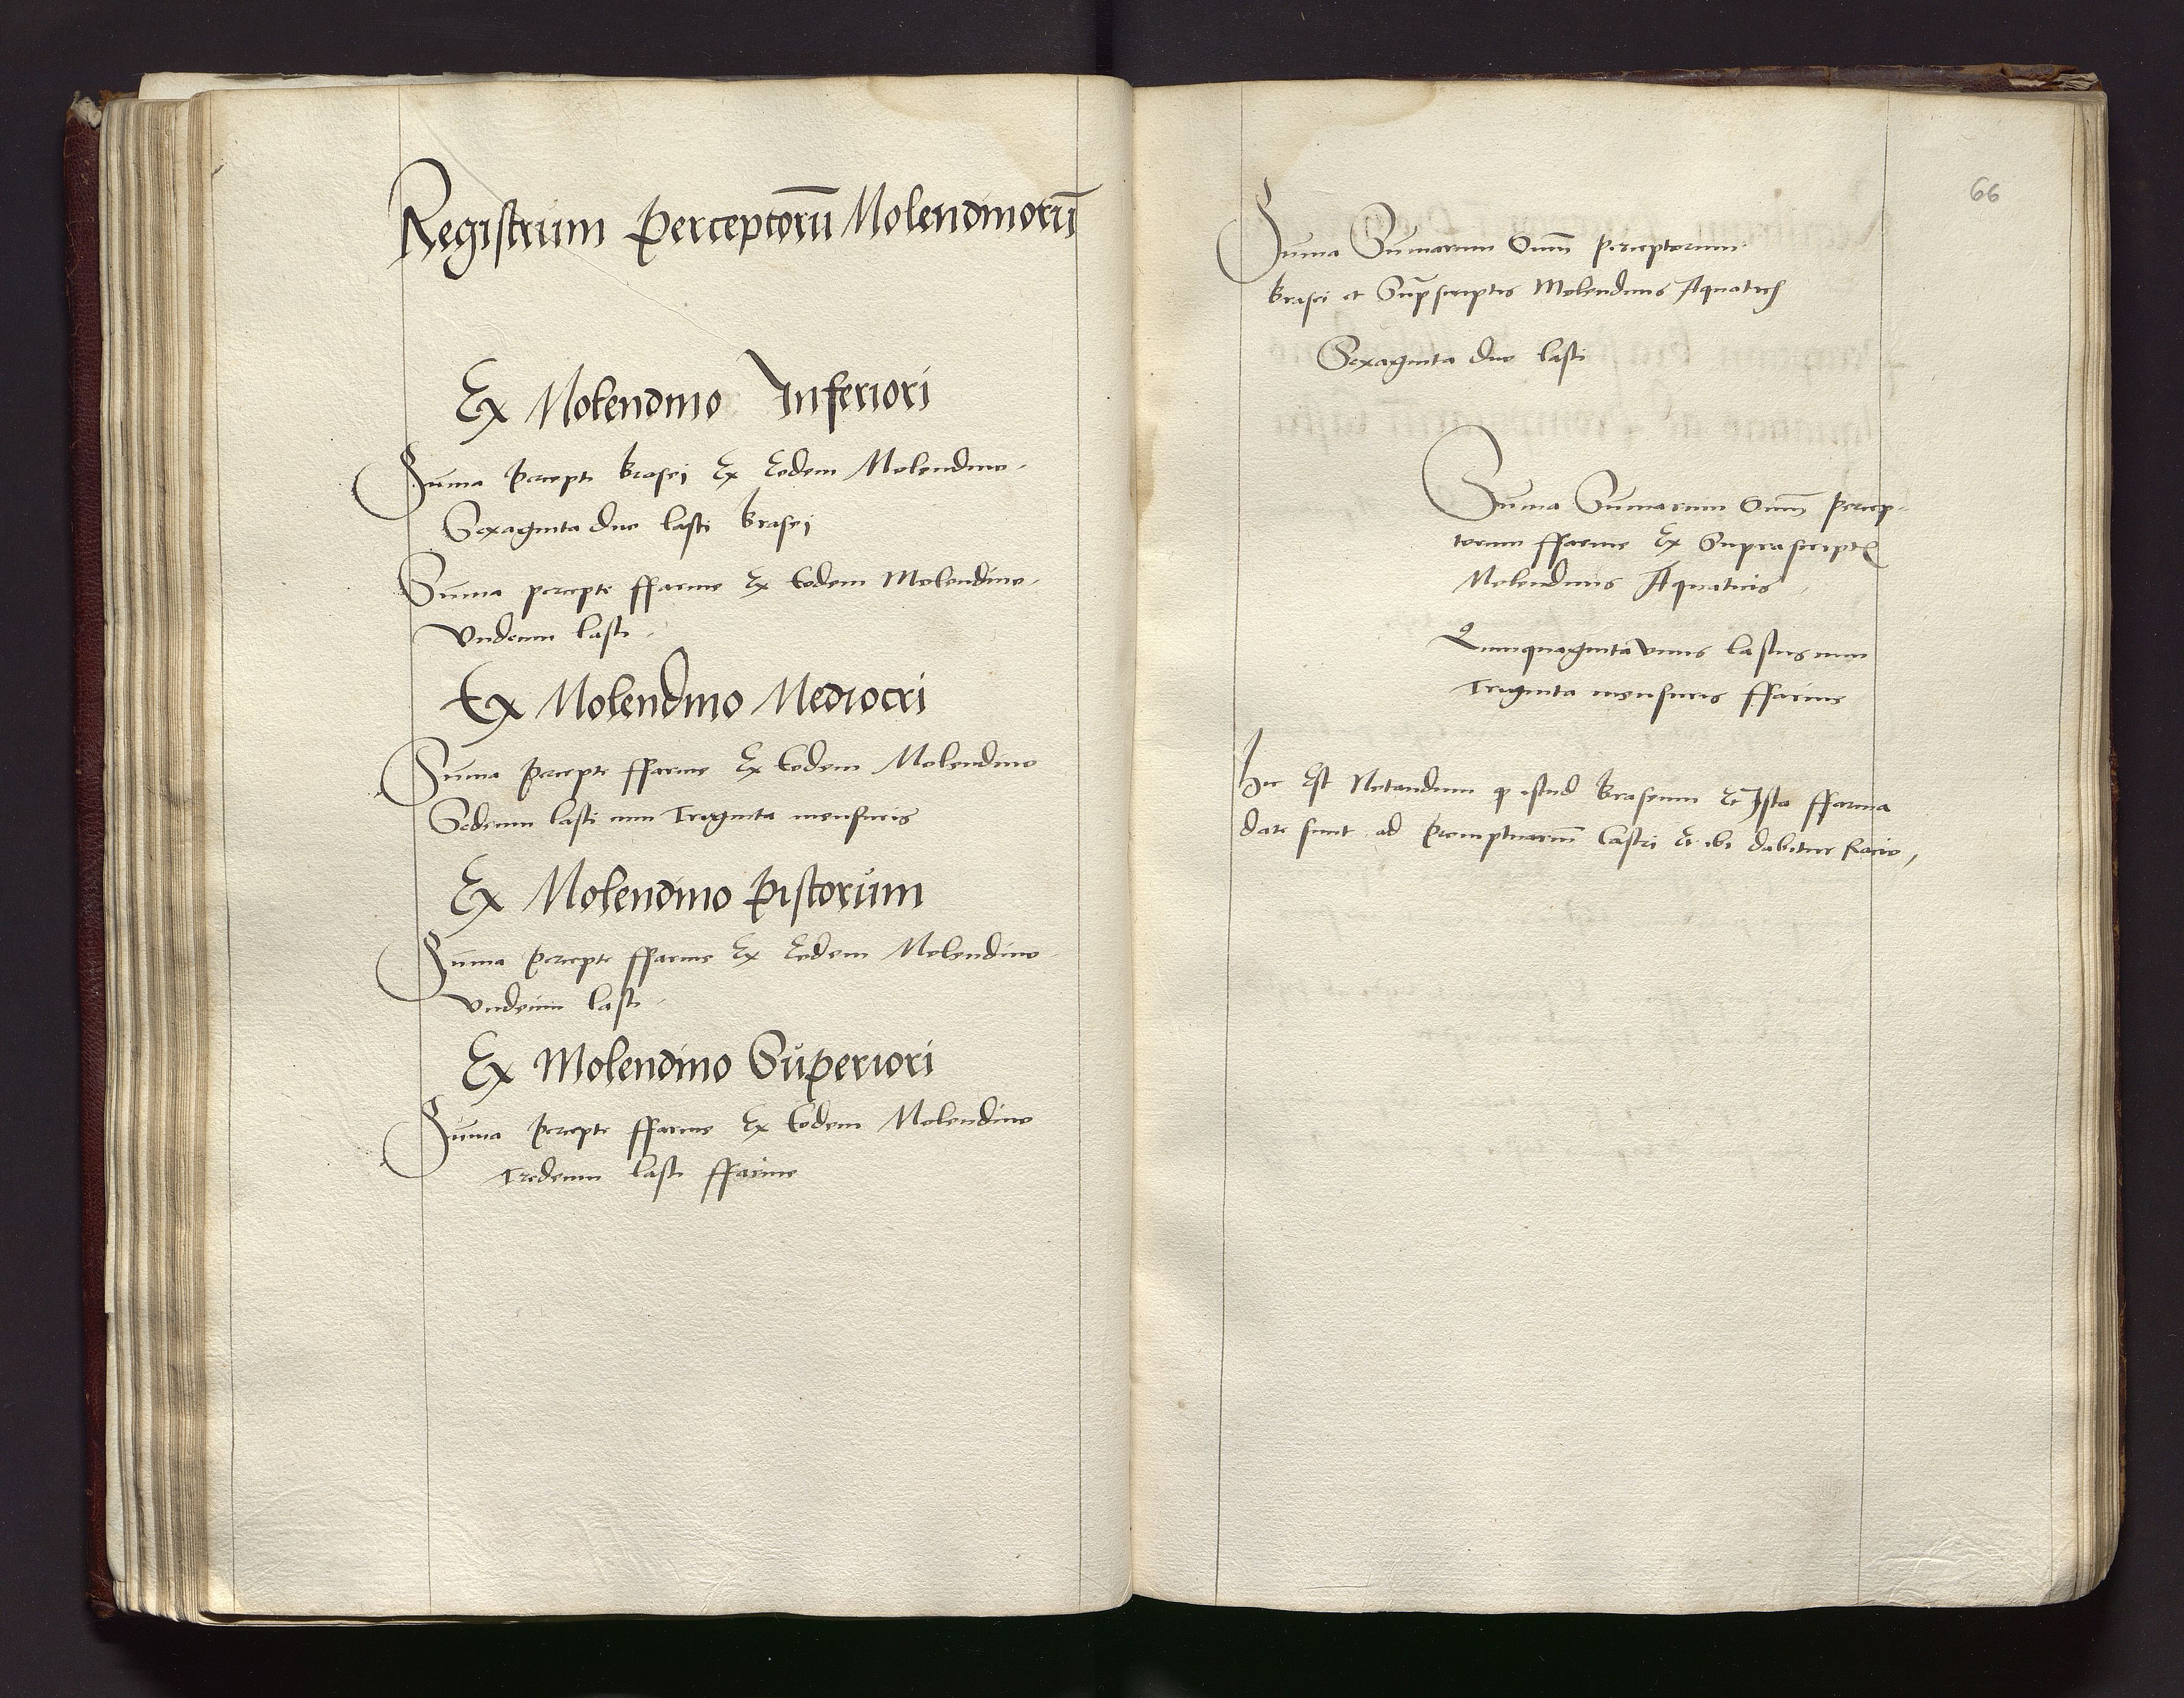 Registrum perceptorū Molendinorū
Ex Molendino Inferiori
Suma percepti brasej Ex Eodem Molendino
Sexaginta duo lasti brasej
Suma percepte ffarine Ex Eodem Molendino
Vndecim lasti
Ex Molendino Mediocri
Suma percepte ffarine Ex Eodem Molendino
Sedecim lasti cum Triginta mensuris
Ex Molendino Pistorum
Suma percepte ffarine Ex Eodem Molendino
Vndecim lasti
Ex Molendino Superiori
Suma percepte ffarine Ex Eodem Molendino
Tredecim lasti ffarine
66
Suma Sumarum Oim̄ perceptorum
brasei et Supscriptis Molendinis Aquatic
Sexaginta duo lasti
Suma Sumarum Oim̄ percep-
torum ffarine Ex Suprascript
Molendinis Aquaticis
Quinquaginta vnus lastus cum
Triginta mensuris ffarine
Hic Est Notandum q istud braseum Et Ista ffarina
date sunt ad promptuariū Castri Et ibi dabitur Racio